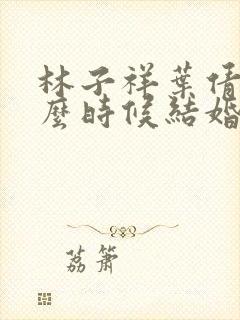 林子祥葉倩
麼時候結婚
荔簫